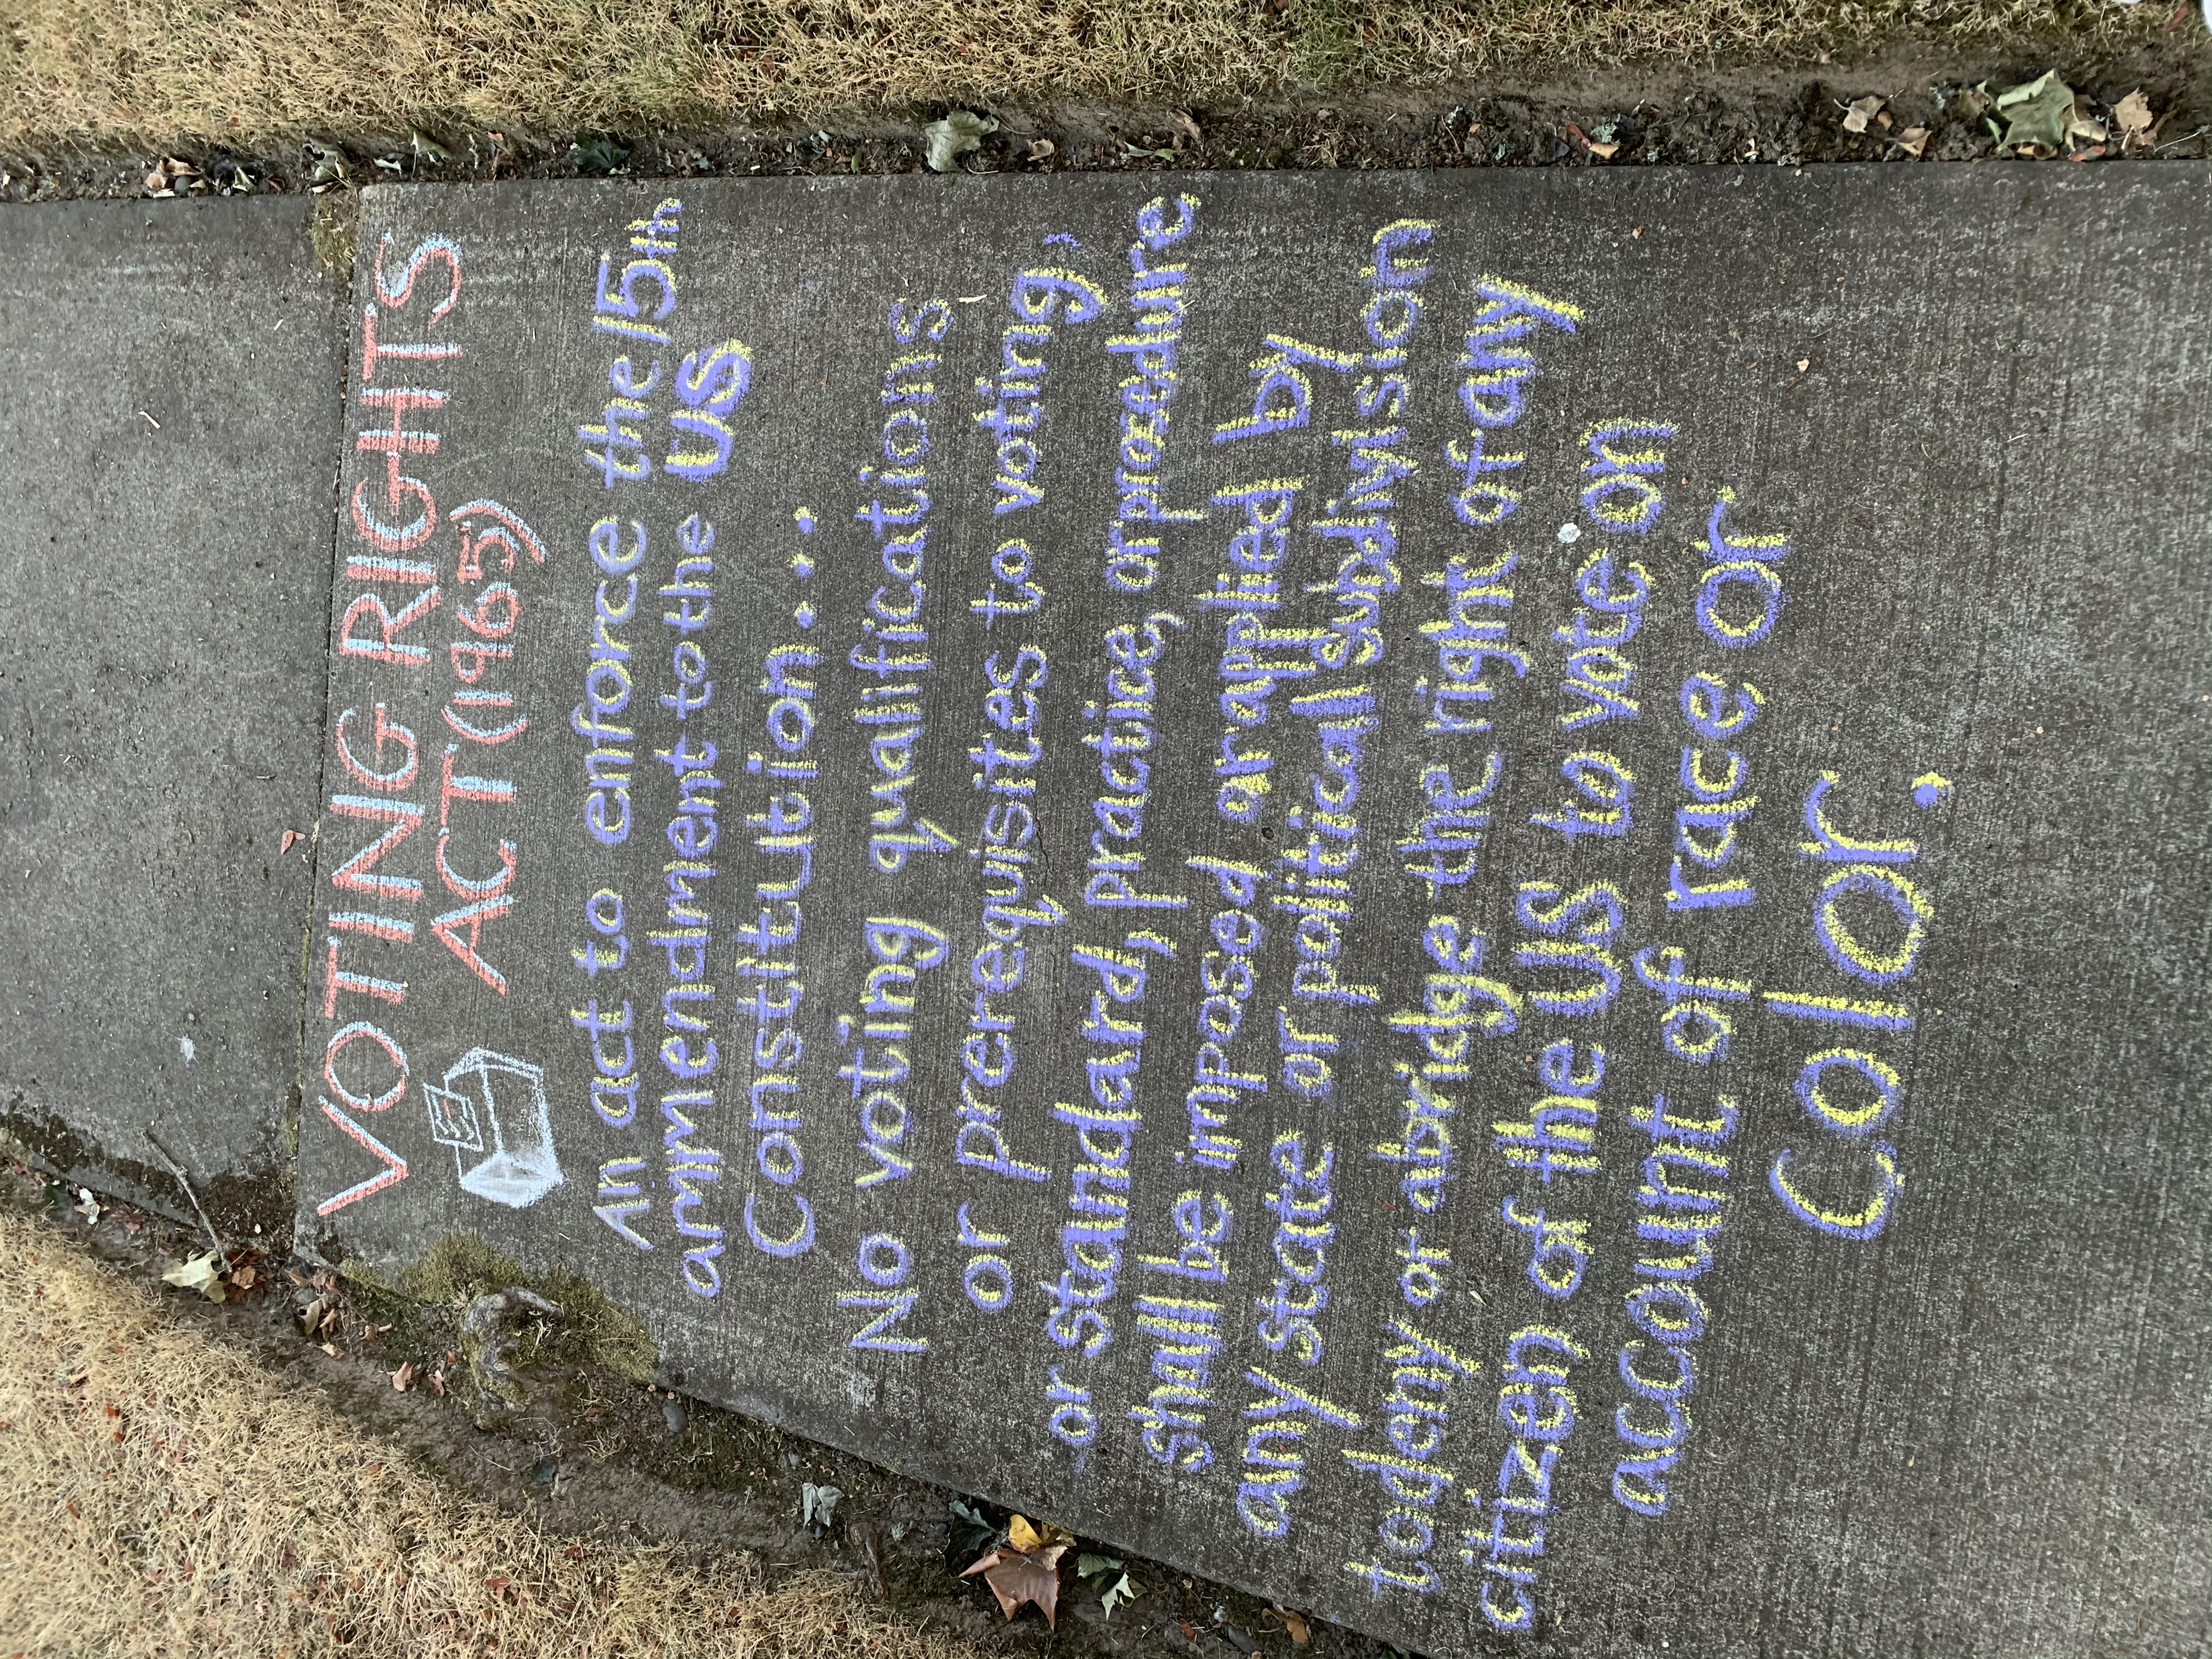 VOTING RIGHTS
ACT (1965)
An act to enforce the 15th
ammendment to the US
Constitution...
No voting qualifications
or prerequisites to voting,
or standard, practice, or procedure,
shall be imposed or applied by
any state or political subdivision
to deny or abridge the right of any
citizen of the US to vote on
account of race or
color.